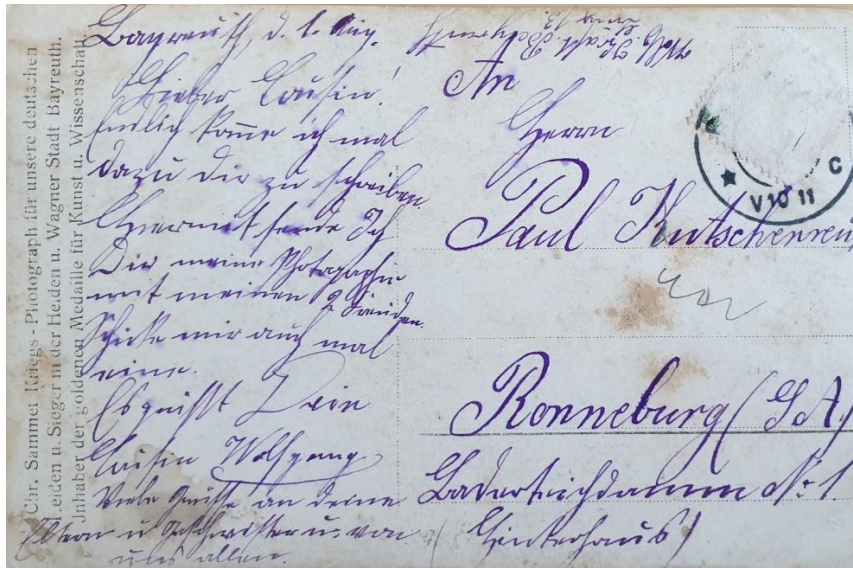 Chr. Sammet Kriegs-Photograph für unsere deutschen
Leiden u. Sieger in der Helden u. Wagner Stadt Bayreuth.
Inhaber der goldenen Medaille für Kunst u. Wissenschaft.
Bayreuth, d. 1. Aug.
Lieber Cousin!
Endlich komme ich mal
dazu Dir zu schreiben.
Hiermit sende Ich
Dir meine Photographie
mit meinen 2 Freunden.
Schicke mir auch mal
eine.
Es grüßt Dein
Cousin Wolfgang
Viele Grüße an deine
Eltern u. Geschwister u. von
uns allen.
An
Herrn
Paul Kutschenreu
Ronneburg (S A)
Baderteichdamm Nr. 1.
(Hinterhaus)
V 10 11
C